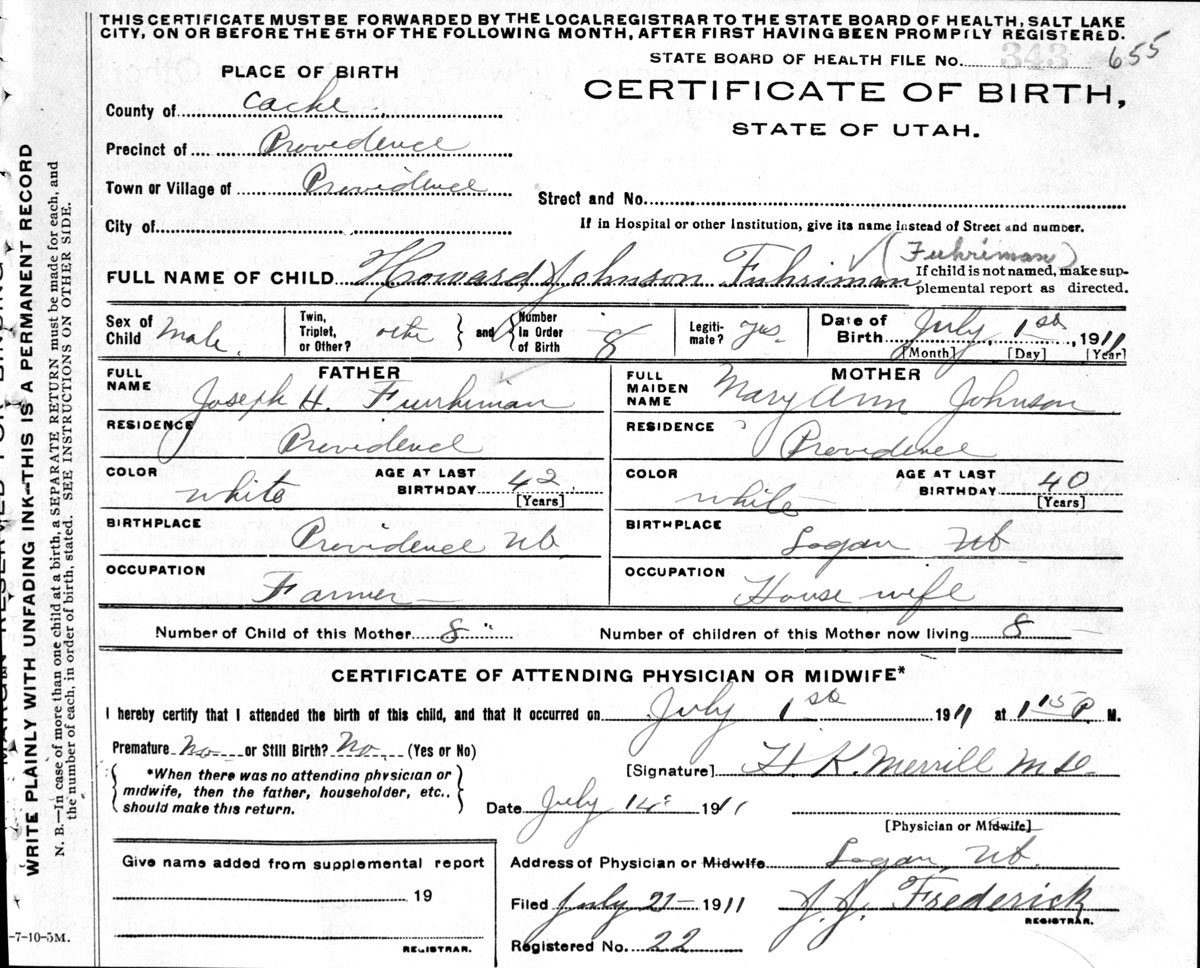 THIS CERTIFICATE MUST BE FORWARDED BY THE LOCAL REGISTRAR TO THE STATE BOARD OF HEALTH, SALT LAKE
CITY, ON OR BEFORE THE 5TH OF THE FOLLOWING MONTH, AFTER FIRST HAVING BEEN PROMPTLY REGISTERED.
STATE BOARD OF HEALTH FILE NO. 343 655
PLACE OF BIRTH
CERTIFICATE OF BIRTH,
STATE OF UTAH.
County of Cache
Precinct of Providence
Town or Village of Providence
Street and No.
City of
If in Hospital or other Institution, give its name instead of Street and number.
(Fuhriman)
FULL NAME OF CHILD Howard Johnson Fuhriman
If child is not named, make sup-
plemental report as directed.
Sex of Child Male.
Twin, Triplet, or Other?
and Number in Order of Birth 8
Legiti-mate? Yes.
Date of Birth July 1st, 1911
[Month] [Day] [Year]
FATHER
FULL NAME Joseph H. Fuurhiman
RESIDENCE Providence
COLOR white AGE AT LAST BIRTHDAY 42 [Years]
BIRTHPLACE Providence Ut.
OCCUPATION Farmer
MOTHER
FULL MAIDEN NAME Mary Ann Johnson
RESIDENCE Providence
COLOR white AGE AT LAST BIRTHDAY 40 [Years]
BIRTHPLACE Logan Ut
OCCUPATION House wife
Number of Child of this Mother 8"
Number of children of this Mother now living 8
CERTIFICATE OF ATTENDING PHYSICIAN OR MIDWIFE*
I hereby certify that I attended the birth of this child, and that it occurred on July 1st 1911 at 1 15 P. M.
Premature No or Still Birth? No (Yes or No)
*When there was no attending physician or
midwife, then the father, householder, etc.,
should make this return.
[Signature] H. K. Merrill M D.
Date July 14 1911
[Physician or Midwife]
Address of Physician or Midwife Logan, Ut.
Filed July 21 1911 J. J. Frederick
REGISTRAR.
Registered No. 22
Give name added from supplemental report
19
REGISTRAR.
-7-10-5M.
MARGIN RESERVED FOR BINDING
WRITE PLAINLY WITH UNFADING INK—THIS IS A PERMANENT RECORD
N. B.—In case of more than one child at a birth, a SEPARATE RETURN must be made for each, and
the number of each, in order of birth, stated. SEE INSTRUCTIONS ON OTHER SIDE.